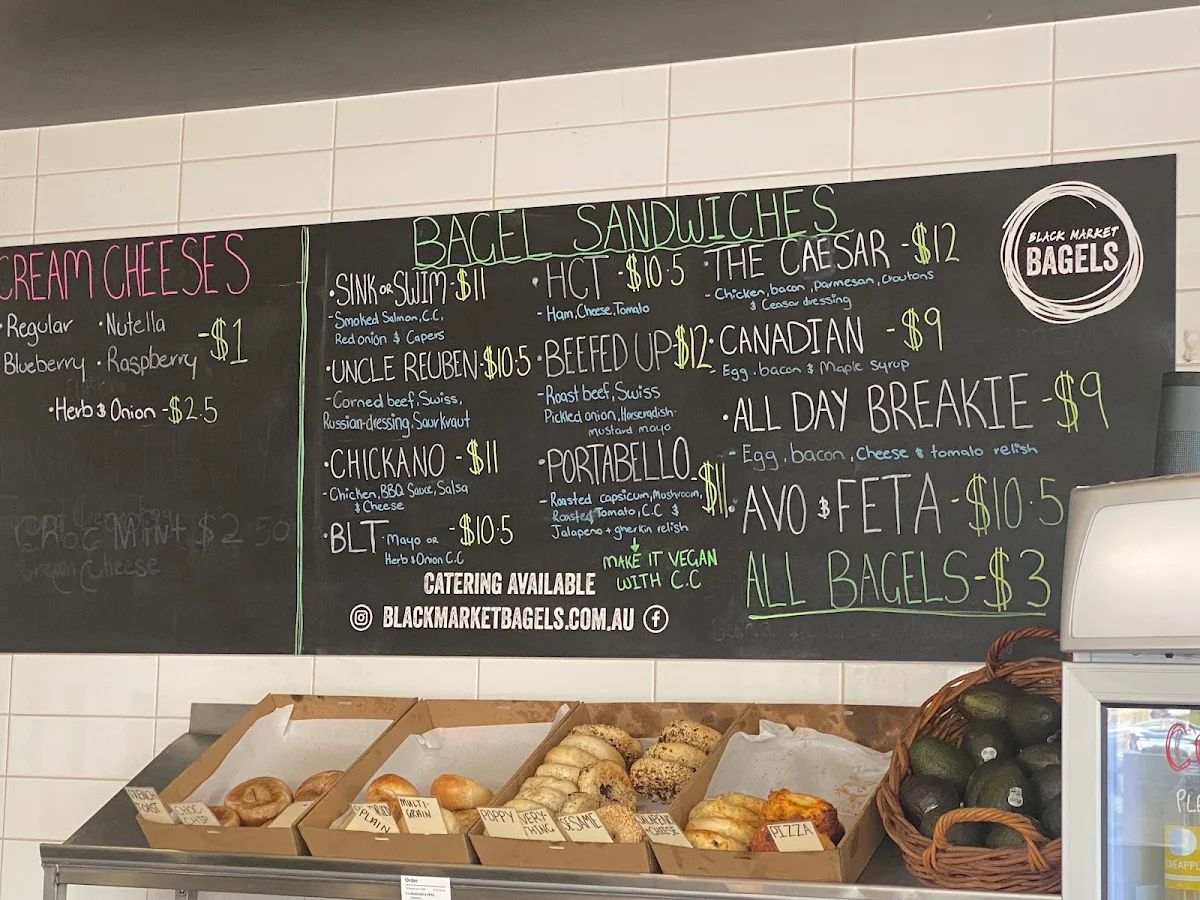 CREAM CHEESES
·Regular ·Nutella
Blueberry ·Raspberry -$1
·Herb & Onion -$2.5
CHOC MINT $2.50
Cream Cheese
BAGEL SANDWICHES
·SINK OR SWIM-$11
-Smoked Salmon, C.C,
Red onion & Capers
·UNCLE REUBEN-$10.5
-Corned beef, Swiss,
Russian-dressing, Saurkraut
·CHICKANO -$11
-Chicken, BBQ Sauce, Salsa
& Cheese
·BLT -Mayo OR -$10.5
Herb & Onion C.C
·HCT -$10.5
-Ham, Cheese, Tomato
·BEEFED UP-$12
-Roast beef, Swiss
Pickled onion, Horseradish-
mustard mayo
·PORTABELLO -$11
-Roasted capsicum, Mushroom,
Roasted Tomato, C.C &
Jalapeno + gherkin relish
MAKE IT VEGAN
WITH C.C
·THE CAESAR -$12
-Chicken, bacon, parmesan, croutons
& Ceasar dressing
·CANADIAN -$9
-Egg, bacon & Maple syrup
·ALL DAY BREAKIE -$9
-Egg, bacon, Cheese & tomato relish
·AVO & FETA -$10.5
ALL BAGELS-$3
CATERING AVAILABLE
BLACKMARKETBAGELS.COM.AU
BLACK MARKET
BAGELS
FRENCH TOAST
CHOC CHIP
PLAIN
MULTI GRAIN
POPPY
EVERYTHING
SESAME
PIZZA
Order